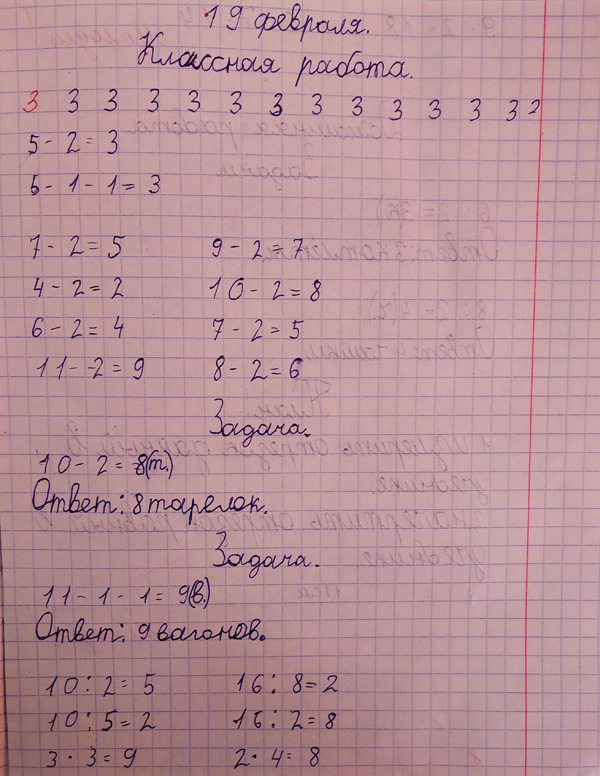 19 февраля.
Классная работа.
3 3 3 3 3 3 3 3 3 3 3 3 3 2
5 - 2 = 3
5 - 1 - 1 = 3
7 - 2 = 5 9 - 2 = 7
4 - 2 = 2 10 - 2 = 8
6 - 2 = 4 7 - 2 = 5
11 - 2 = 9 8 - 2 = 6
Задача.
10 - 2 = 8(т.)
Ответ: 8 тарелок.
Задача.
11 - 1 - 1 = 9(в.)
Ответ: 9 вагонов.
10 : 2 = 5 16 : 8 = 2
10 : 5 = 2 16 : 2 = 8
3 · 3 = 9 2 · 4 = 8